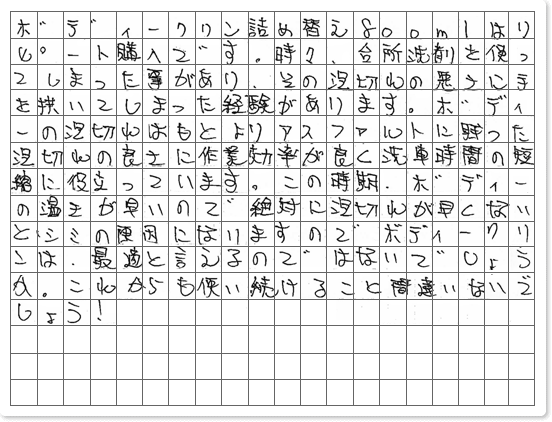 ボディークリン詰め替え800mlはリ
ピート購入です。時々、台所洗剤を使っ
てしまった事があり、その泡切れの悪さにき
を抜いてしまった経験があります。ボディ
ーの泡切れはもとよりアスファルトに野った
泡切れの良さに作業効率が良く洗車時間の短
縮に役立っています。この時期、ボディー
の温まが早いので絶対に泡切れが早くない
とシミの原因になりますのでボディークリ
こは、最適と言えるのではないでしょう
か。これからも使い続けること間違いないで
しょう!